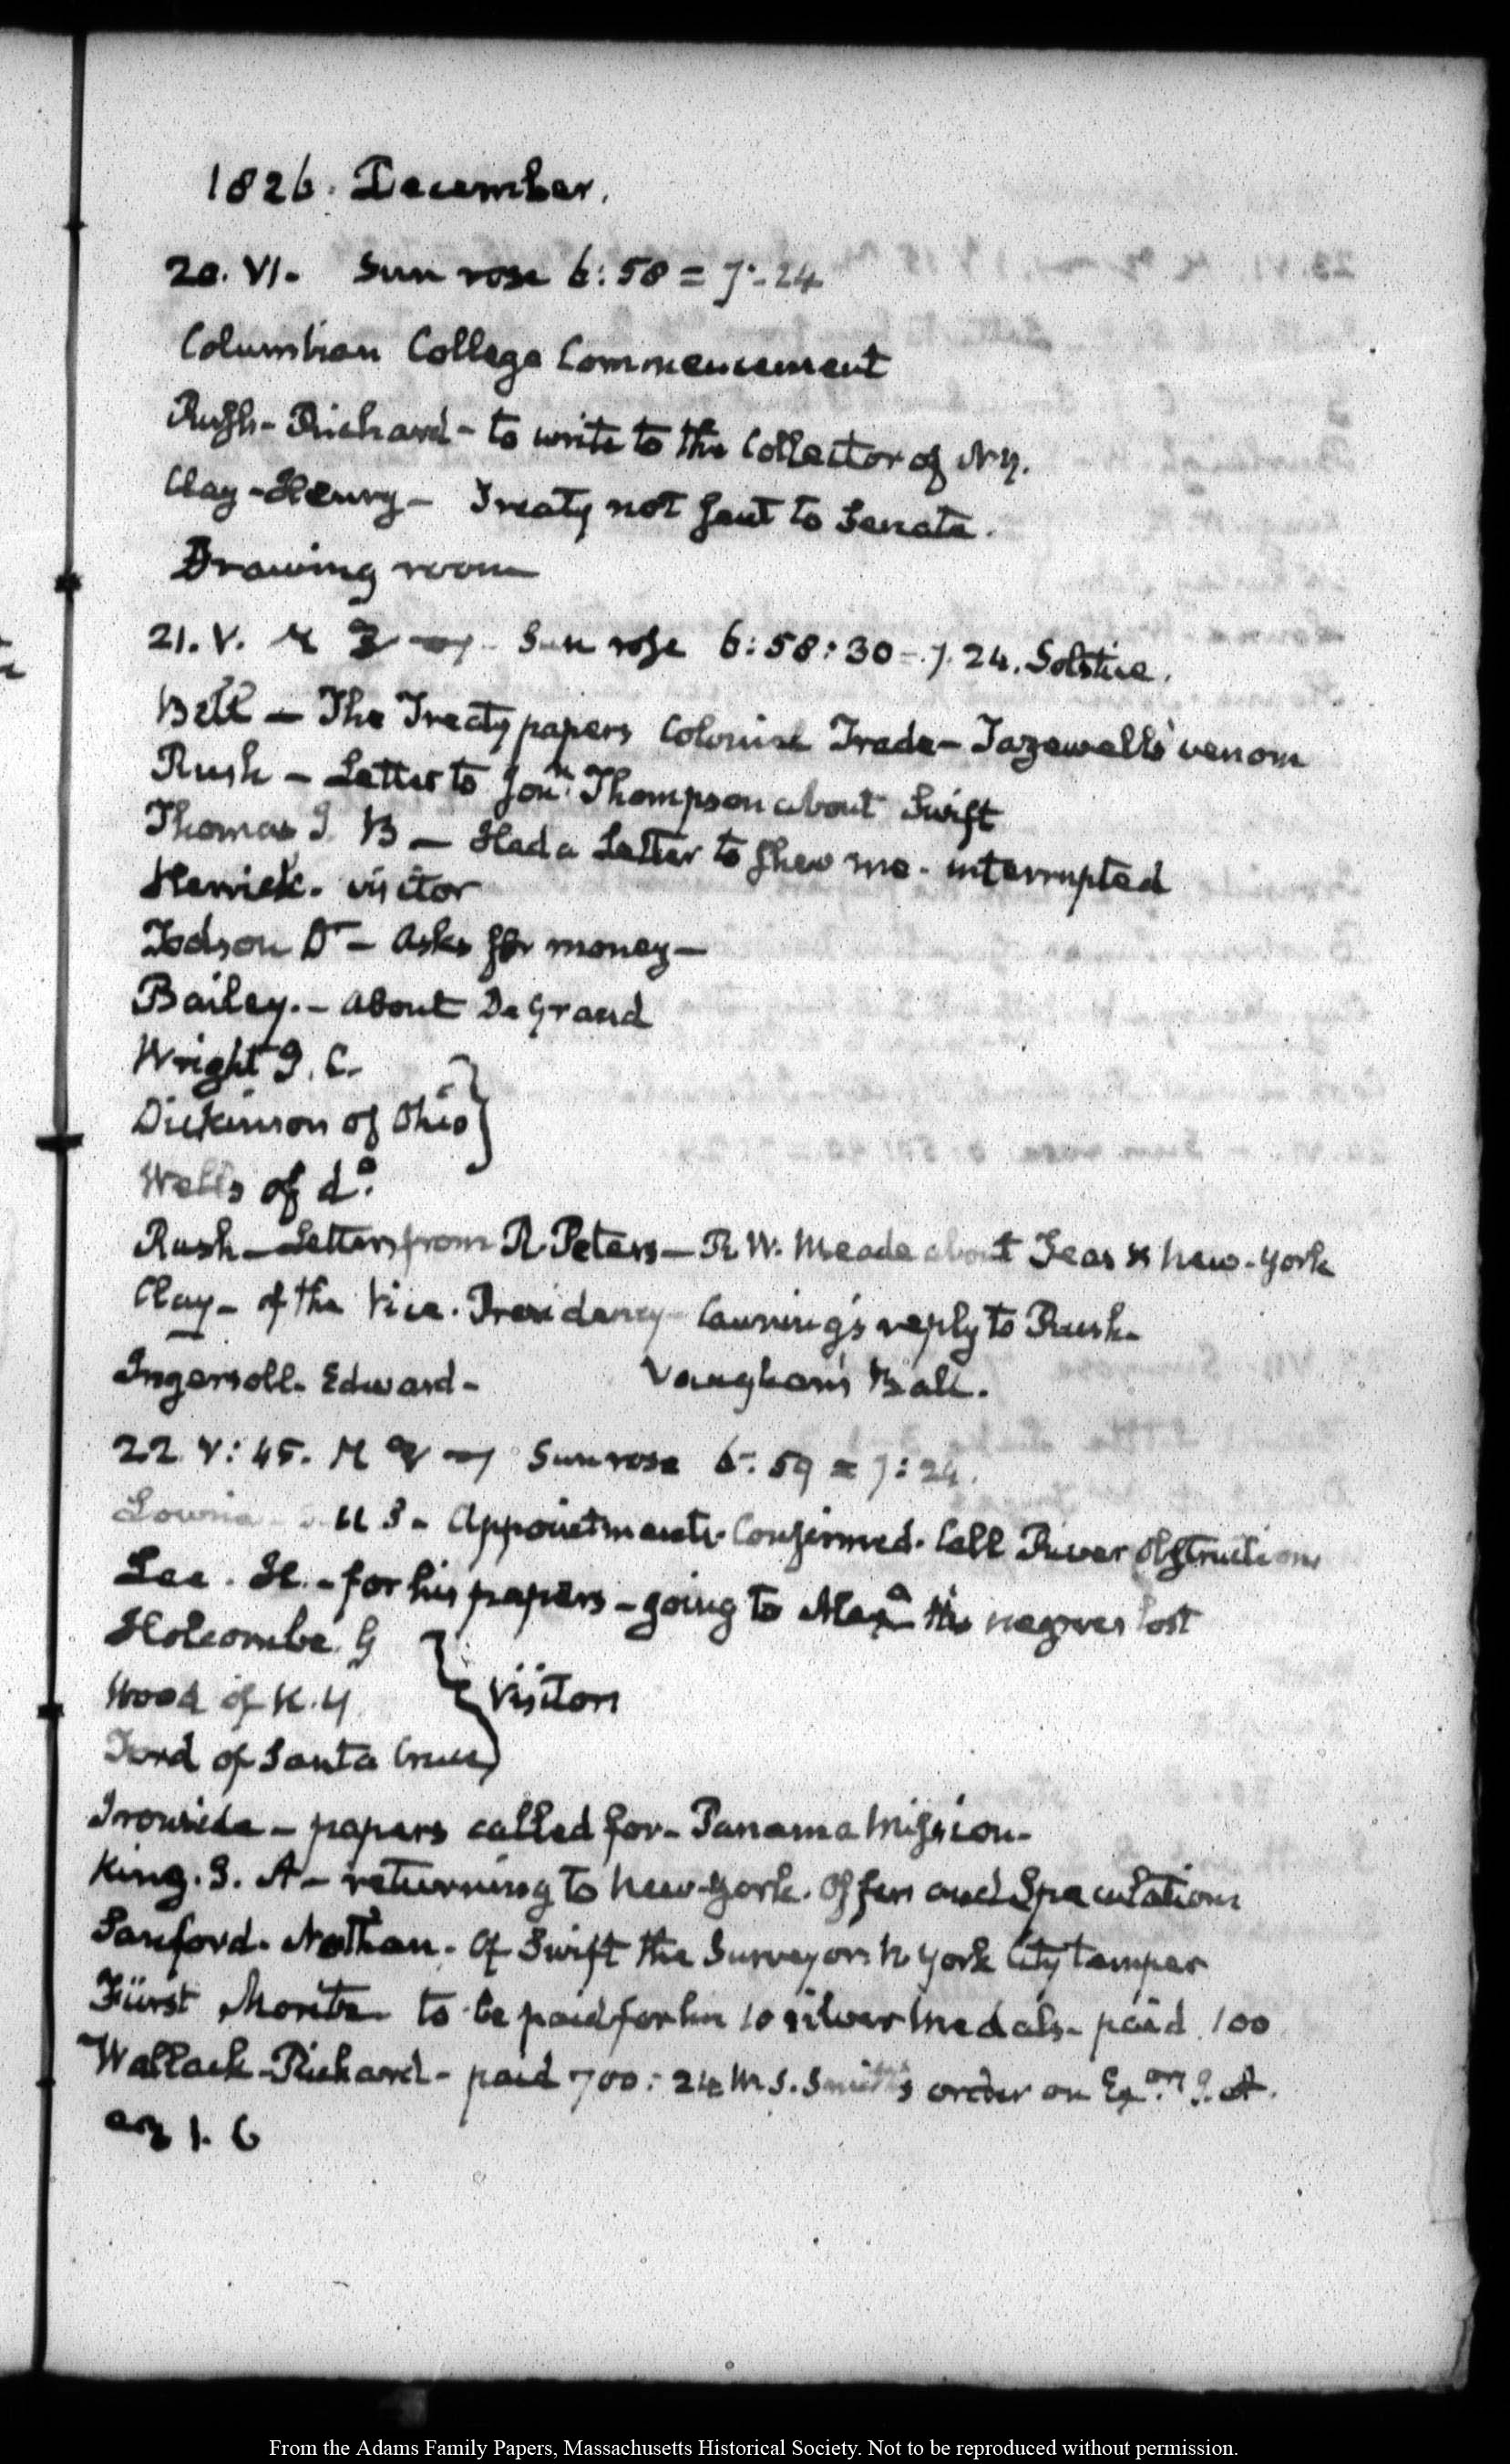 1826. December.
20. VI. Sun rose 6:58 = 7:24
Columbian College Commencement
Rush - Richard - to write to the Collector of N.Y.
Clay - Henry - Treaty not sent to Senate.
Drawing room
21. V. Sun rose 6:58:30 - 7.24. Solstice.
Bell - The Treaty papers Colonial Trade - Tazewell's venom
Rush - Letter to Jonn. Thompson about Swift
Thomas J. B - Had a Letter to shew me. interrupted
Herrick. visitor
Todson Dr - Asks for money -
Bailey. - about De Grand
Wright J. C.
Dickinson of Ohio
Wells of do.
Rush - Letters from R Peters - R W. Meade about Teas & New-York
Clay - of the Vice-Presidency - Canning's reply to Rush.
Ingersoll. Edward - Vaughan's Ball.
22 V:45. Sun rose 6:59 = 7:24.
Lowrie U S - Appointments. Confirmed. River Obstructions
Lee. H. - for his papers - going to Alexa the negroes lost
Holcombe. G
Wood of N.Y. visitors
Ford of Santa Cruz
Ironside - papers called for - Panama Mission -
King. J. A - returning to New-York. Offers and Speculations
Sanford. Nathan. Of Swift the Surveyor. N York City temper
Fürst Moritz to be paid for his 10 silver Medals - paid 100
Wallack - Richard - paid 700:24 W. S. Smith's order on Exor. J. A.